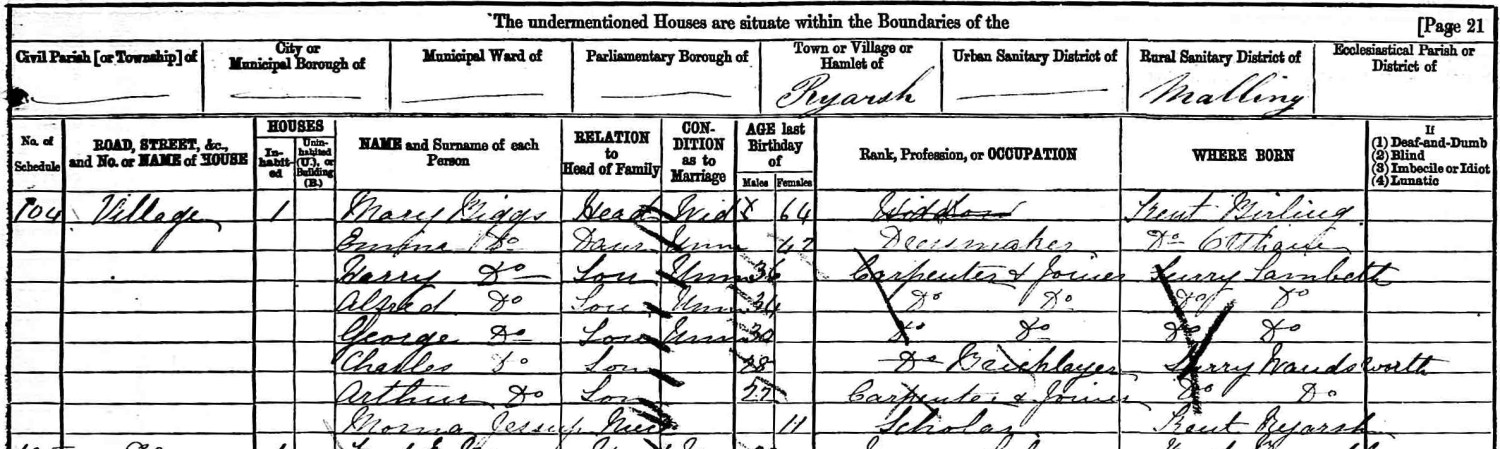 The undermentioned Houses are situate within the Boundaries of the [Page 21
Civil Parish [or Township] of City or Municipal Borough of Municipal Ward of Parliamentary Borough of Town or Village or Hamlet of Urban Sanitary District of Rural Sanitary District of Ecclesiastical Parish or District of
Ryarsh Malling
No. of Schedule ROAD, STREET, &c., and No. or NAME of HOUSE HOUSES Inhabited Uninhabited (U.), or Building (B.) NAME and Surname of each Person RELATION to Head of Family CONDITION as to Marriage AGE last Birthday of Males Females Rank, Profession, or OCCUPATION WHERE BORN If (1) Deaf-and-Dumb (2) Blind (3) Imbecile or Idiot (4) Lunatic
104 Village 1 Mary Head Wid 64 Widdow Kent Birling
Emma Do Daur Unm Dressmaker Do
Harry Do Son Unm 36 Carpenter & Joiner Surry Lambeth
Alfred Do Son Unm 34 Do Do Do Do
George Do Son Unm 30 Do Do Do Do
Charles Do Son 28 Do Bricklayer Surry Wandsworth
Arthur Do Son 22 Carpenter & Joiner Do Do
Jessup 11 Scholar Kent Ryarsh